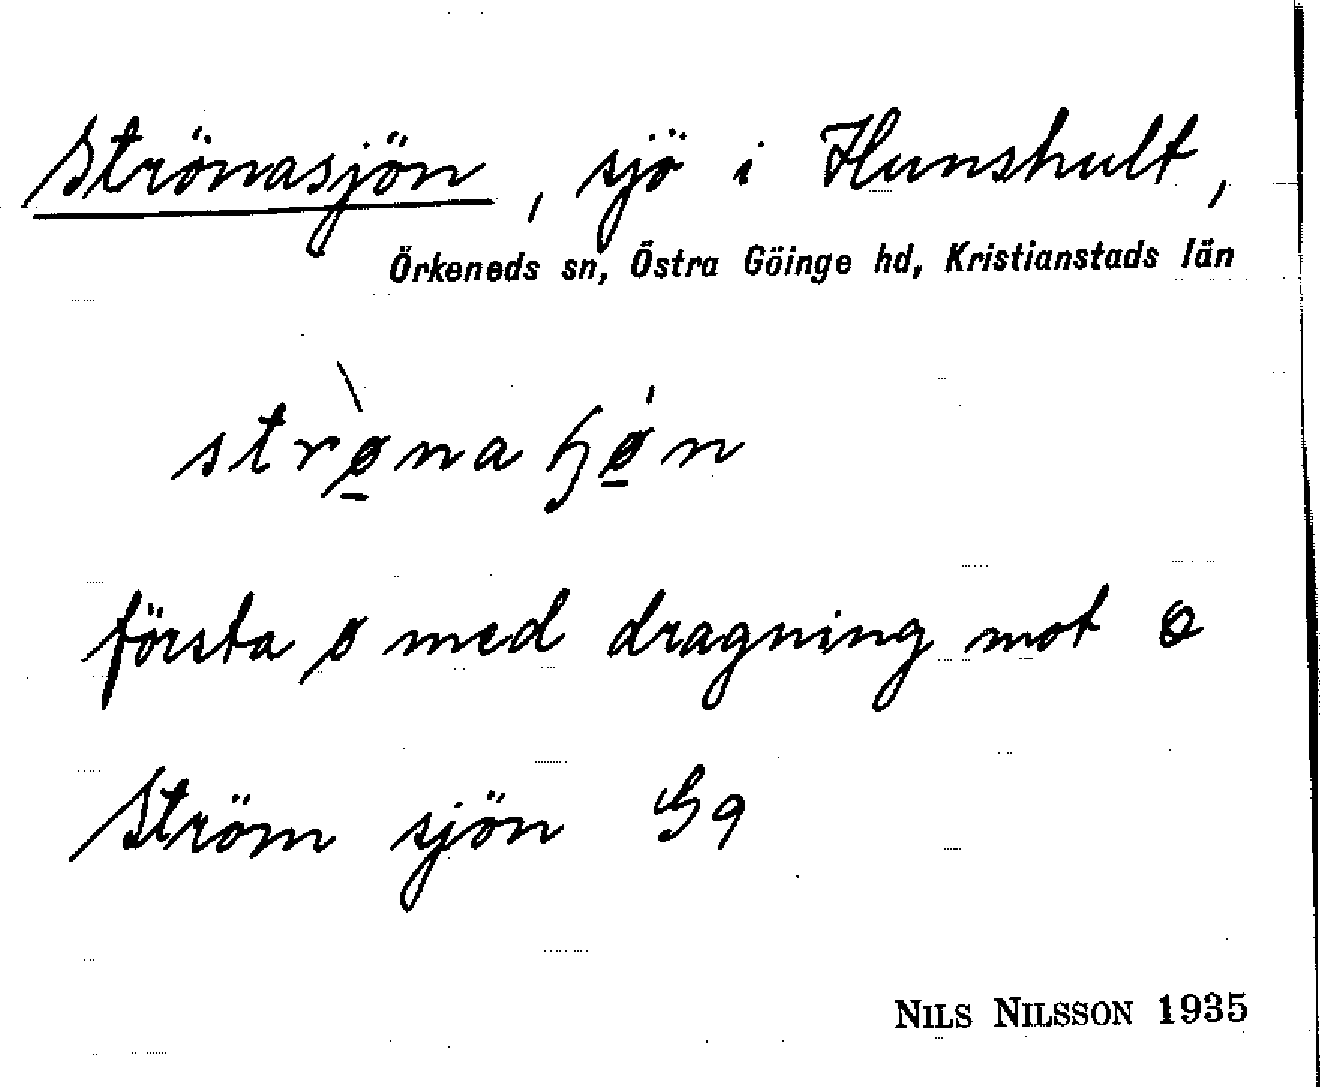 Strönasjön, sjö i Hunshult,
Örkeneds sn, Östra Göinge hd, Kristianstads län
strø̠̀na ɧǿ̠n
första ø med dragning mot
Ström sjön G9
NILS NILSSON 1935